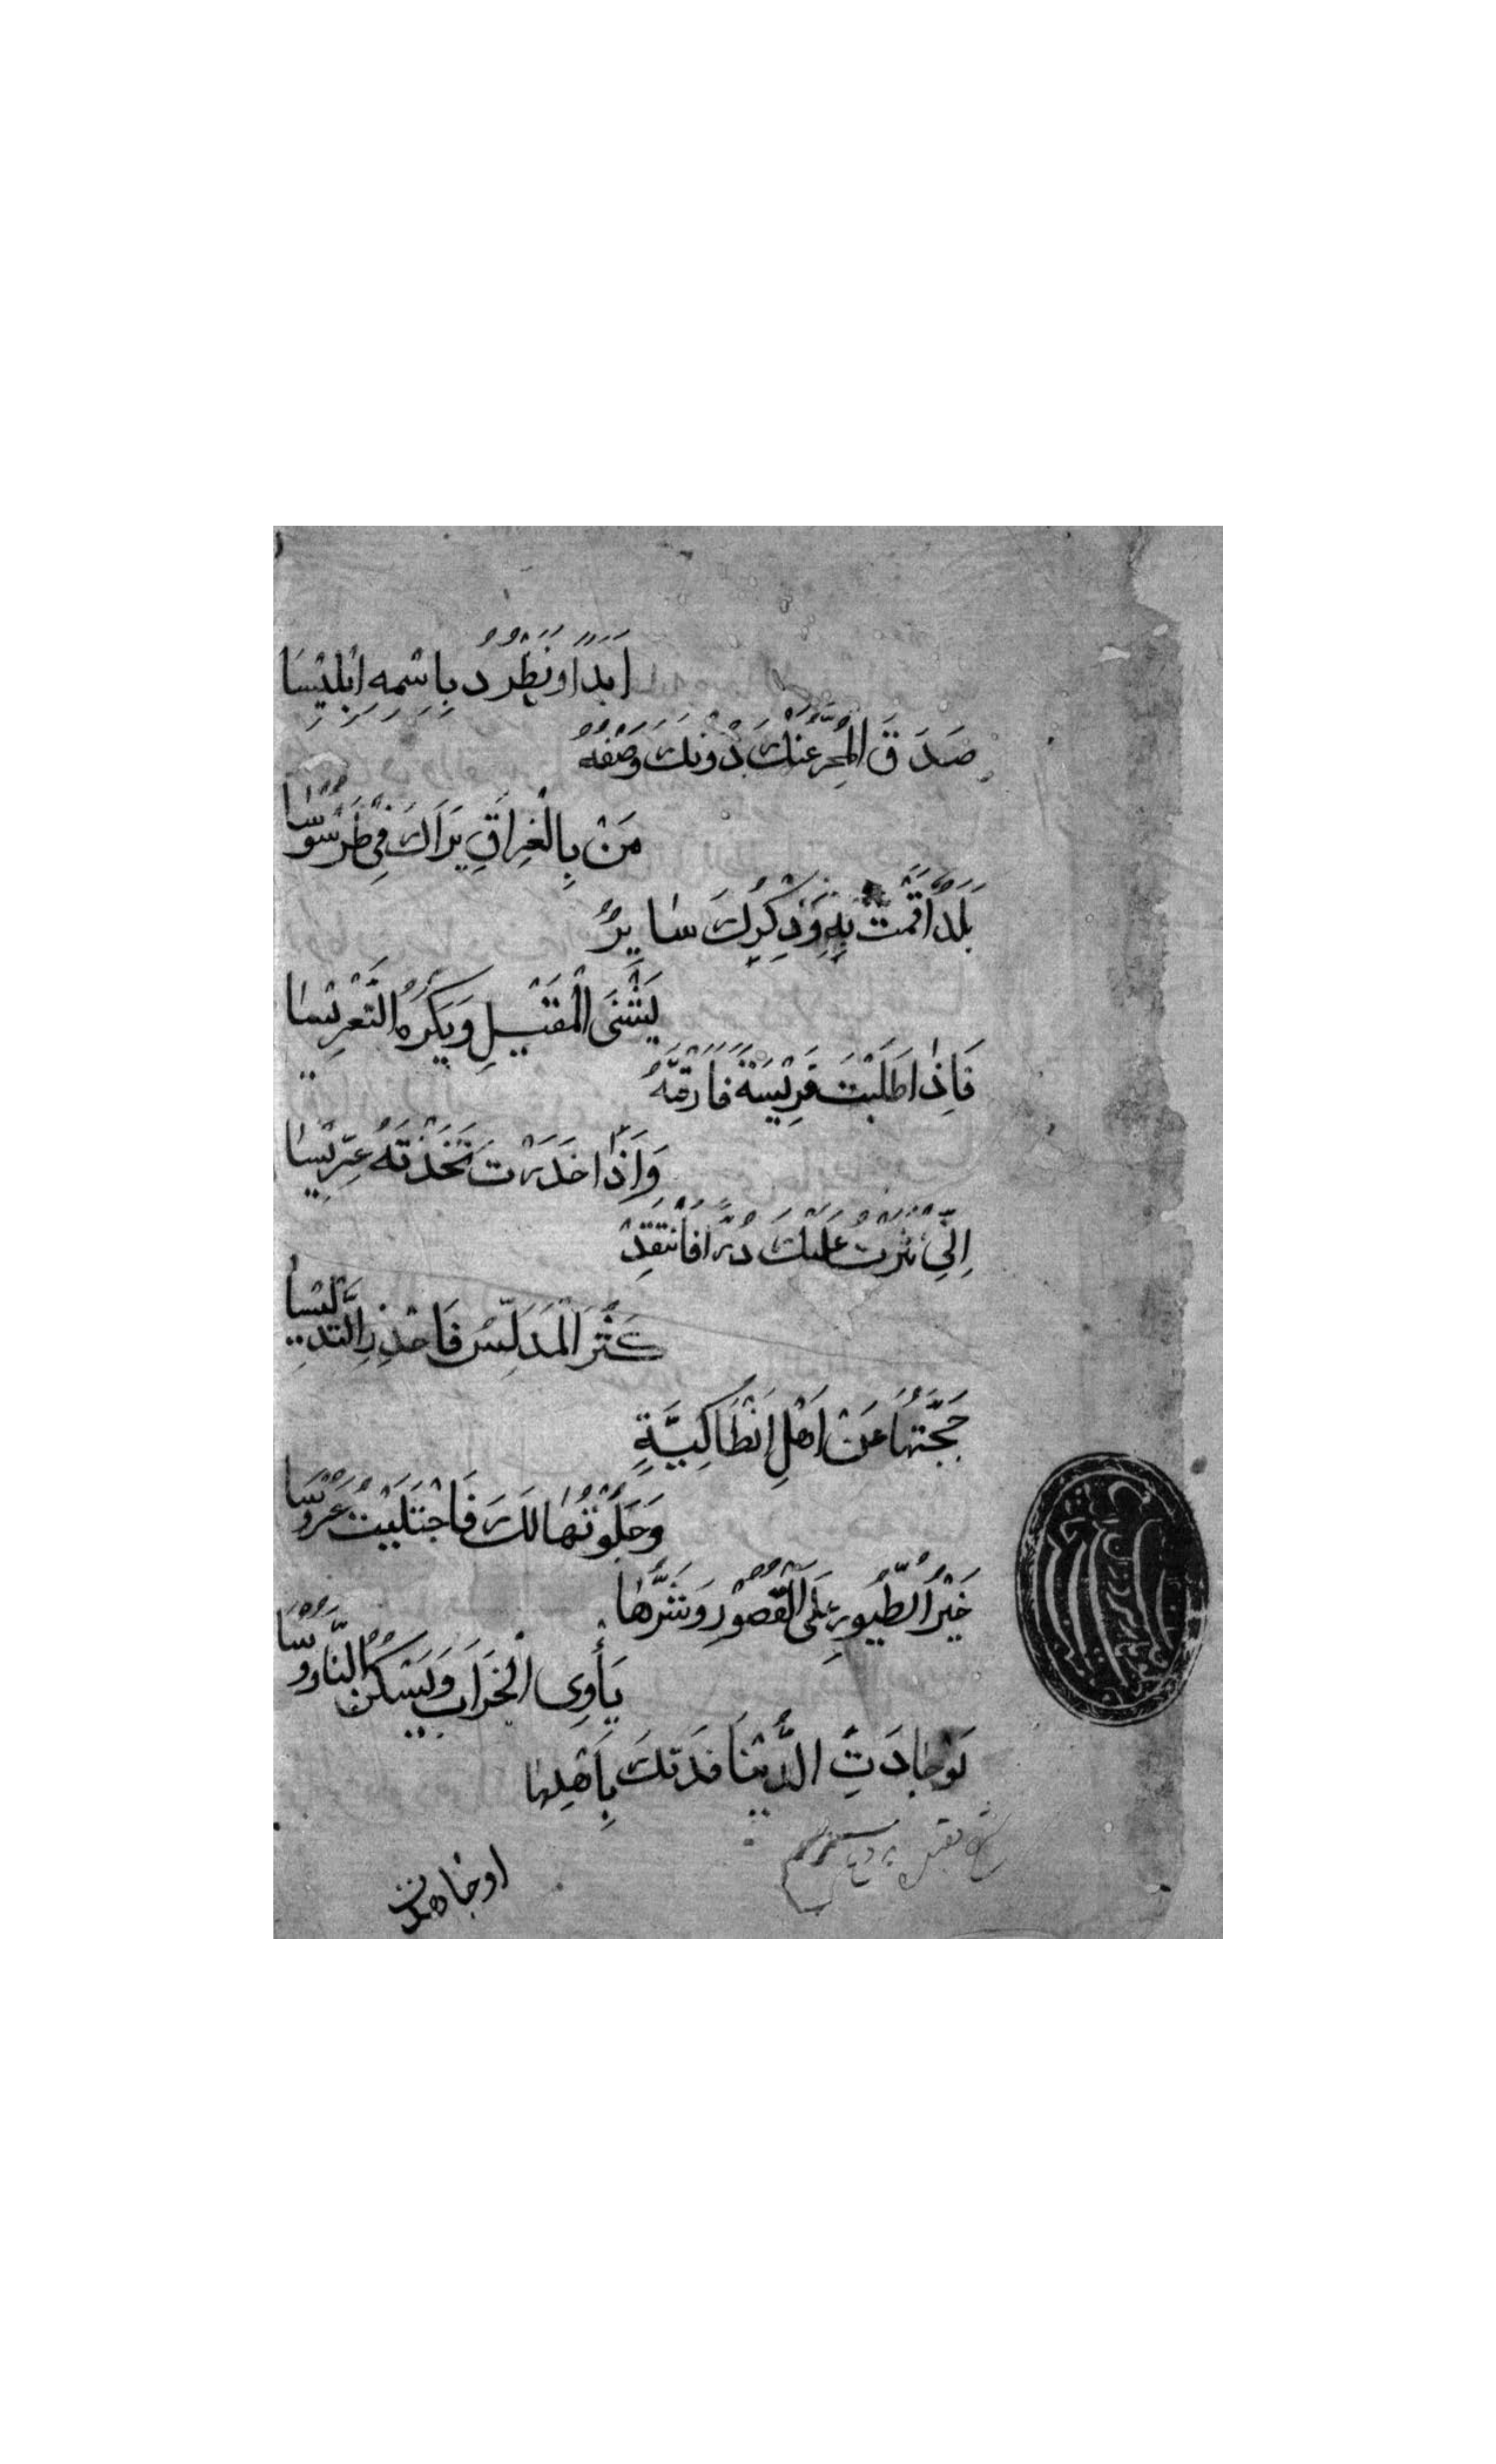 اَبَدًا وَنَطْرُدُ بِاسْمِهِ اِبْلِيْسَا
صَدَقَ الْمُخَبِّرُ عَنْكَ دُوْنَكَ وَصْفُهُ
مَنْ بِالْعِرَاقِ يَرَاكَ فِي طَرَسُوْسَا
بَلَدٌ اَقَمْتَ بِهِ وَذِكْرُكَ سَايِرٌ
يَشْنَى الْمَقِيْلَ وَيَكْرَهُ التَّعْرِيْسَا
فَاِذَا طَلَبْتَ فَرِيْسَةً فَارَقْتَهُ
وَاِذَا خَدَرْتَ تَخِذْتَهُ عِرِّيْسَا
اِنِّي نَثَرْتُ عَلَيْكَ دُرًّا فَانْتَقِدْ
كَثُرَ الْمُدَلِّسُ فَاحْذَرِ التَّدْلِيْسَا
حَجَّبْتُهَا عَنْ اَهْلِ اِنْطَاكِيَّةٍ
وَجَلَوْتُهَا لَكَ فَاجْتَلَيْتَ عَرُوْسَا
خَيْرُ الطُّيُوْرِ عَلَى الْقُصُوْرِ وَشَرُّهَا
يَأْوِى الْخَرَابَ وَيَسْكُنُ النَّاوُوْسَا
لَوْ جَادَتِ الدُّنْيَا فَدَتْكَ بِاَهْلِهَا
اوجاهدت